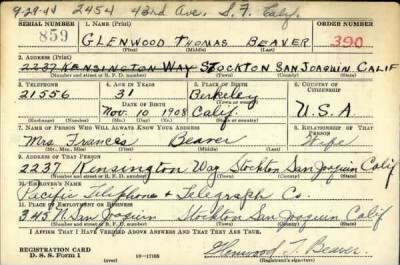 9-29-44 2454 43rd Ave. S.F. Calif.
SERIAL NUMBER 1. NAME (Print) ORDER NUMBER
859 GLENWOOD THOMAS BEAVER 390
(First) (Middle) (Last)
2. ADDRESS (Print)
2237 KENSINGTON WAY STOCKTON SAN JOAQUIN CALIF
(Number and street or R. F. D. number) (Town) (County) (State)
3. TELEPHONE 4. AGE IN YEARS 5. PLACE OF BIRTH 6. COUNTRY OF CITIZENSHIP
21556 31 Berkeley
DATE OF BIRTH (Town or county)
Nov. 10 1908 Calif. U.S.A.
(Exchange) (Number) (Mo.) (Day) (Yr.) (State or country)
7. NAME OF PERSON WHO WILL ALWAYS KNOW YOUR ADDRESS 8. RELATIONSHIP OF THAT PERSON
Mrs. Frances Beaver Wife
(Mr., Mrs., Miss) (First) (Middle) (Last)
9. ADDRESS OF THAT PERSON
2237 Kensington Way Stockton San Joaquin Calif
(Number and street or R. F. D. number) (Town) (County) (State)
10. EMPLOYER'S NAME
Pacific Telephone & Telegraph Co.
11. PLACE OF EMPLOYMENT OR BUSINESS
345 N. San Joaquin Stockton San Joaquin Calif
(Number and street or R. F. D. number) (Town) (County) (State)
I AFFIRM THAT I HAVE VERIFIED ABOVE ANSWERS AND THAT THEY ARE TRUE.
REGISTRATION CARD
D. S. S. Form 1 16-17105 Glenwood T. Beaver